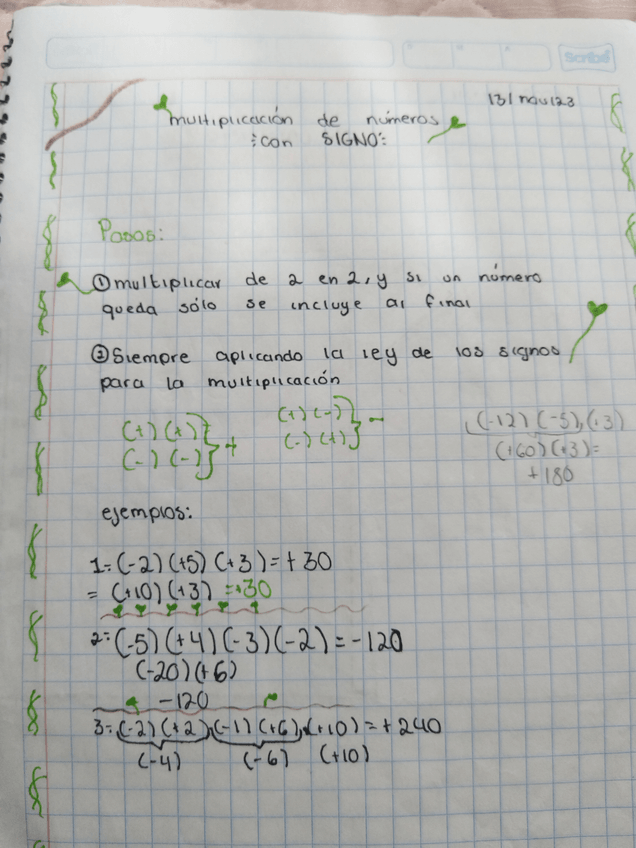 Scribe
13/nov/23
multiplicación de números
:con SIGNO:
Pasos:
① multiplicar de 2 en 2, y si un número
queda sólo se incluye al final
② Siempre aplicando la ley de los signos
para la multiplicación
(+) (+) } + (+) (-) } -
(-) (-) (-) (+)
(-12) (-5), (+3)
(+60) (+3) =
+180
ejemplos:
1= (-2) (+5) (+3) = + 30
= (+10) (+3) =+30
2= (-5) (+4) (-3) (-2) = -120
(-20) (+6)
-120
3= (-2) (+2), (-1) (+6), (+10) = + 240
(-4) (-6) (+10)